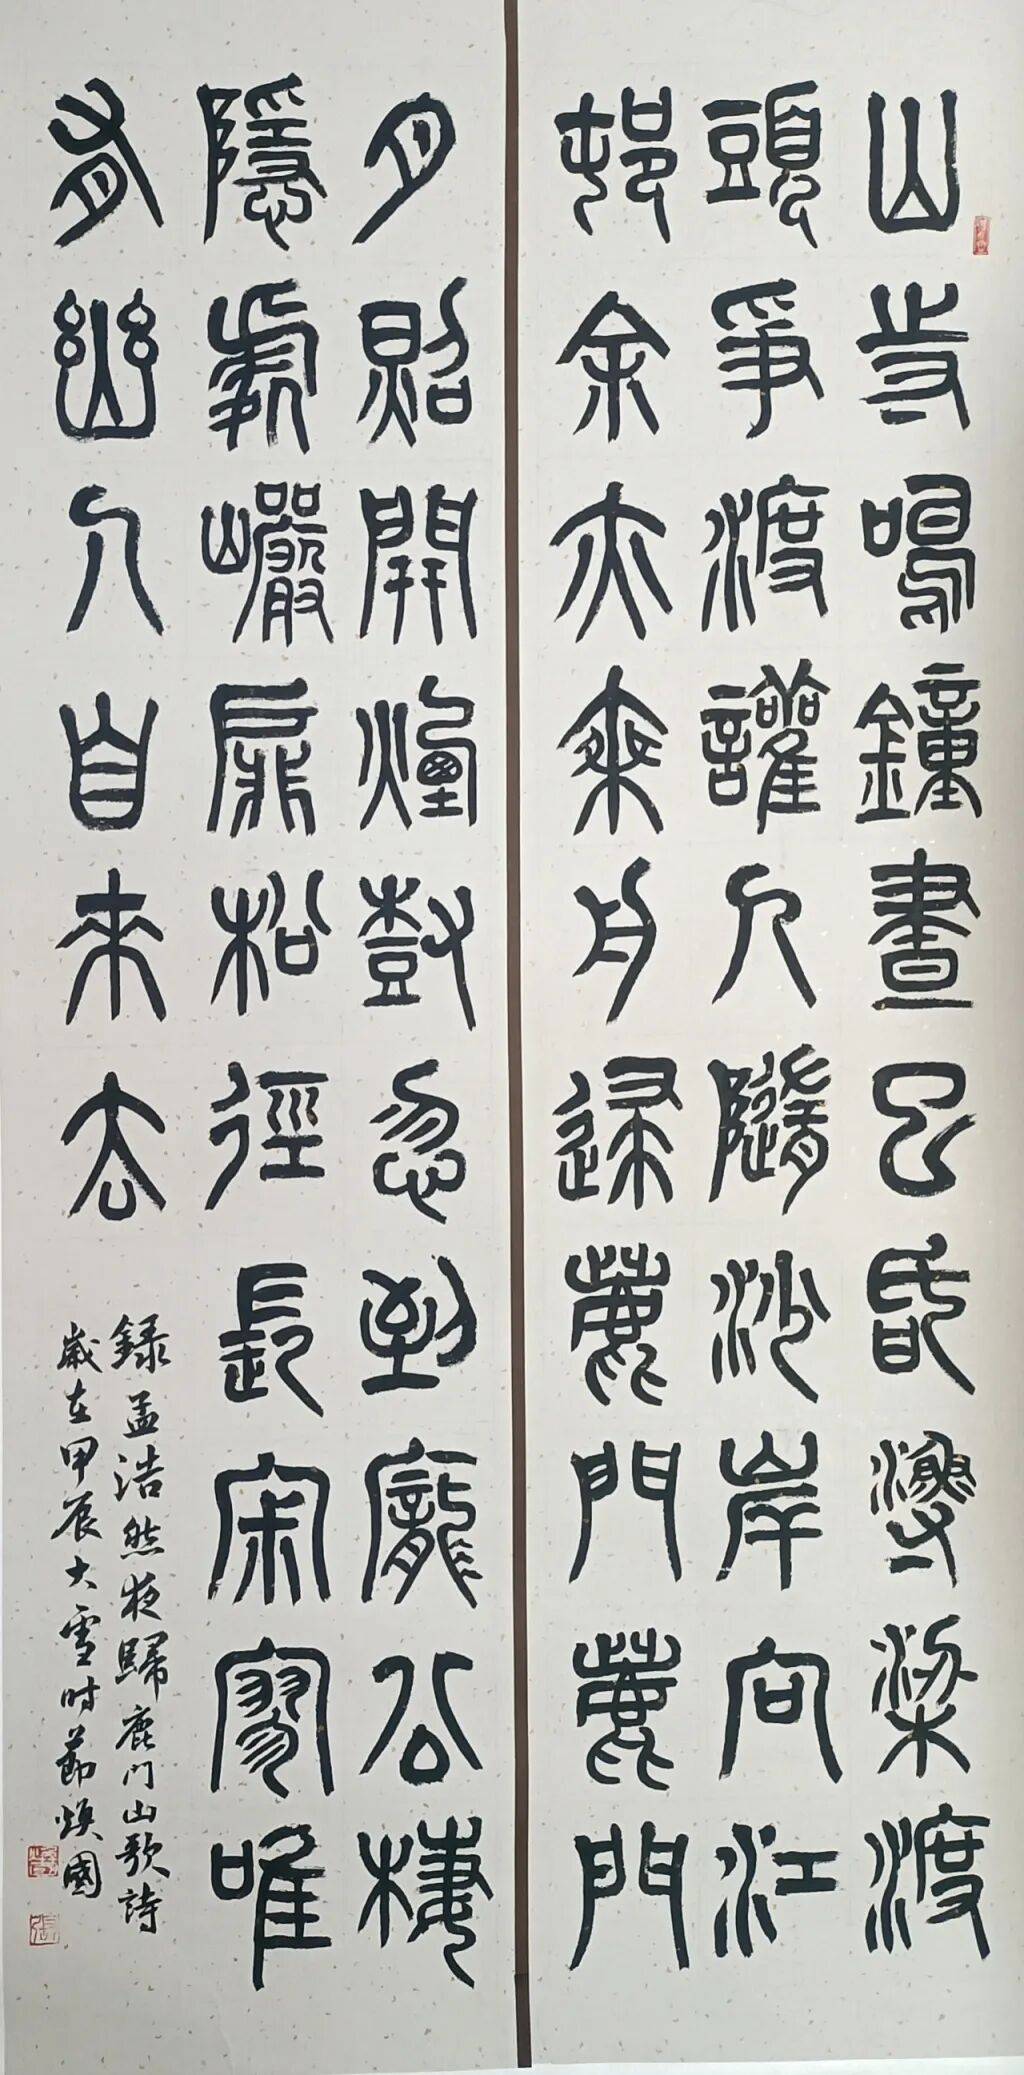 山寺鳴鐘晝已昏漁梁渡
頭爭渡讙人隨沙岸向江
邨余亦乘舟歸鹿門鹿門
月照開煙樹忽到龐公棲
隱處巖扉松徑長寂寥唯
有幽人自來去
錄孟浩然夜歸鹿门山歌詩
歲在甲辰大雪时節煥國